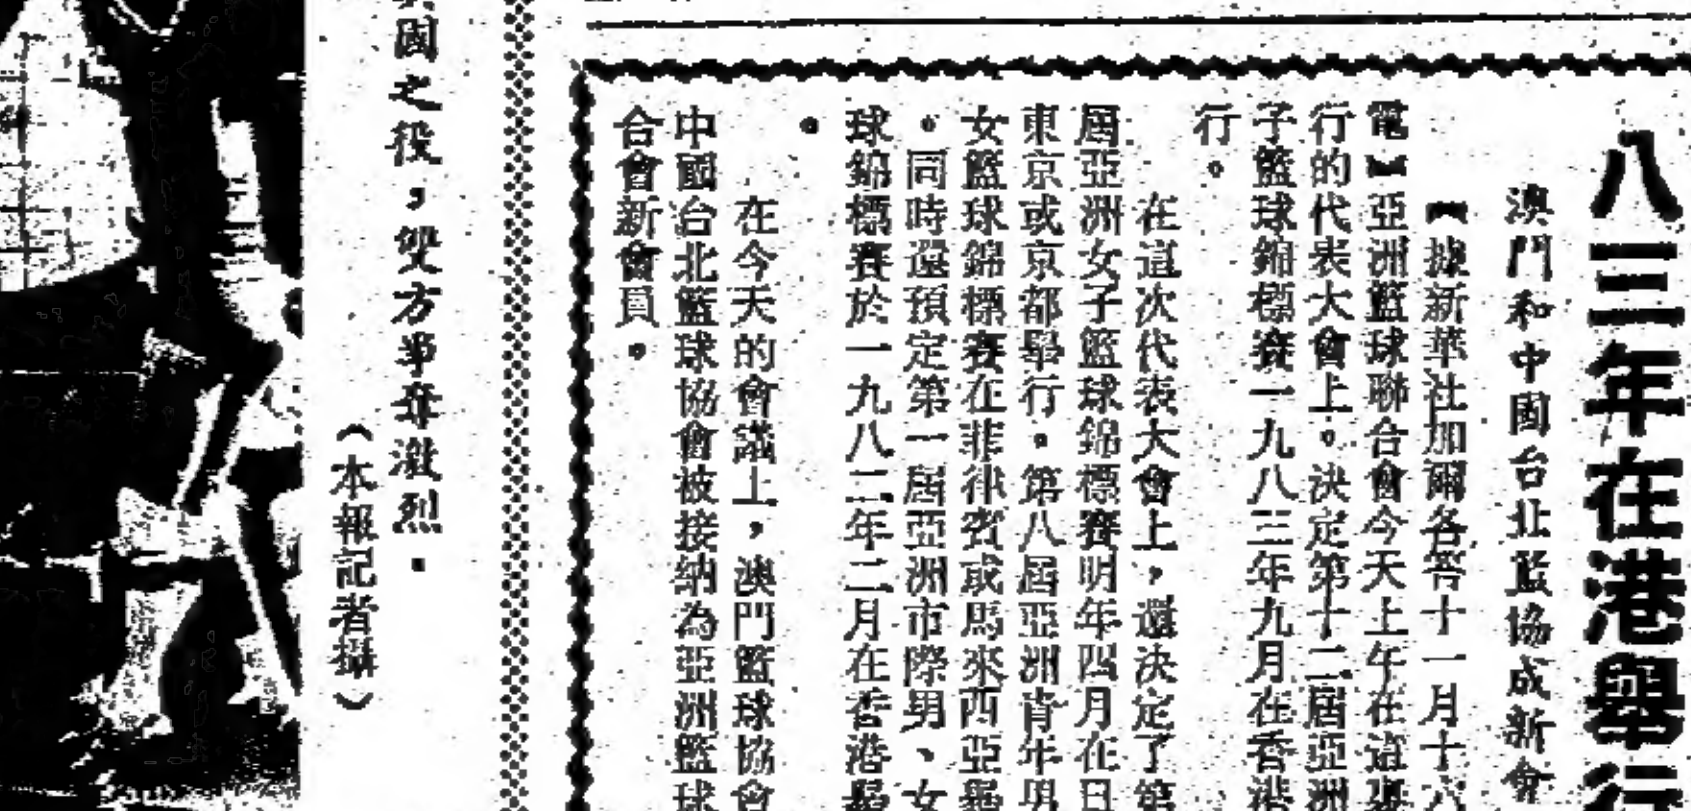 八三年在港舉行
澳門和中國台北籃協成新會
【據新華社加爾各答十一月十八
電】亞洲籃球聯合會今天上午在這裏
行的代表大會上。決定第十二屆亞洲
子籃球錦標賽一九八三年九月在香港
行。
在這次代表大會上，還決定了第
屆亞洲女子籃球錦標賽明年四月在日
東京或京都舉行。第八屆亞洲青年男
女籃球錦標賽在菲律賓或馬來西亞舉
。同時還預定第一屆亞洲市際男、女
球錦標賽於一九八二年二月在香港舉
。
在今天的會議上，澳門籃球協會
中國台北籃球協會被接納為亞洲籃球
合會新會員。
國之役，雙方爭奪激烈.
（本報記者攝）